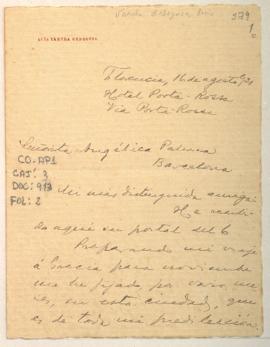 379
1
Florencia, 16 de agosto
Hotel Porta-Rossa
Via Porta-Rossa
Señorita Angélica Palma
Barcelona
CO-AP1
CAJ: 3
DOC: 913
FOL: 2
Mi más distinguida amiga:
He recibi-
do aquí su postal del 6
Preparando mi viaje
á Grecia para noviembre
me he fijado por varios me-
ses, en esta ciudad, que
es de toda mi predilección